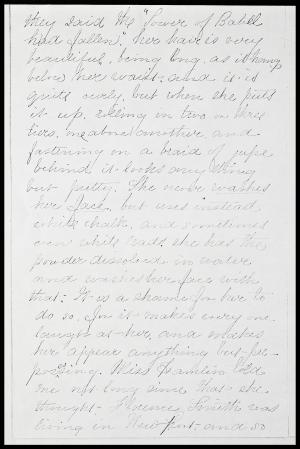 they said the "Tower of Babell
had fallen", her hair is very
beautiful, being long, as it hangs
below her waist, and it is
quite curly, but when she puts
it up, rolling in two or three
tiers, one above another and
fastening on a braid of jute
behind it looks anything
but pretty. She never washes
her face, but uses instead
white chalk, and sometimes
even white lead, she has the
powder dissolved in water
and washes her face with
that: It is a shame for her to
do so, for it makes every one
laugh at her, and makes
her appear anything but pre-
possing. Miss Hamlin told
me not long since that she
thought Florence, was
living in Newport and so